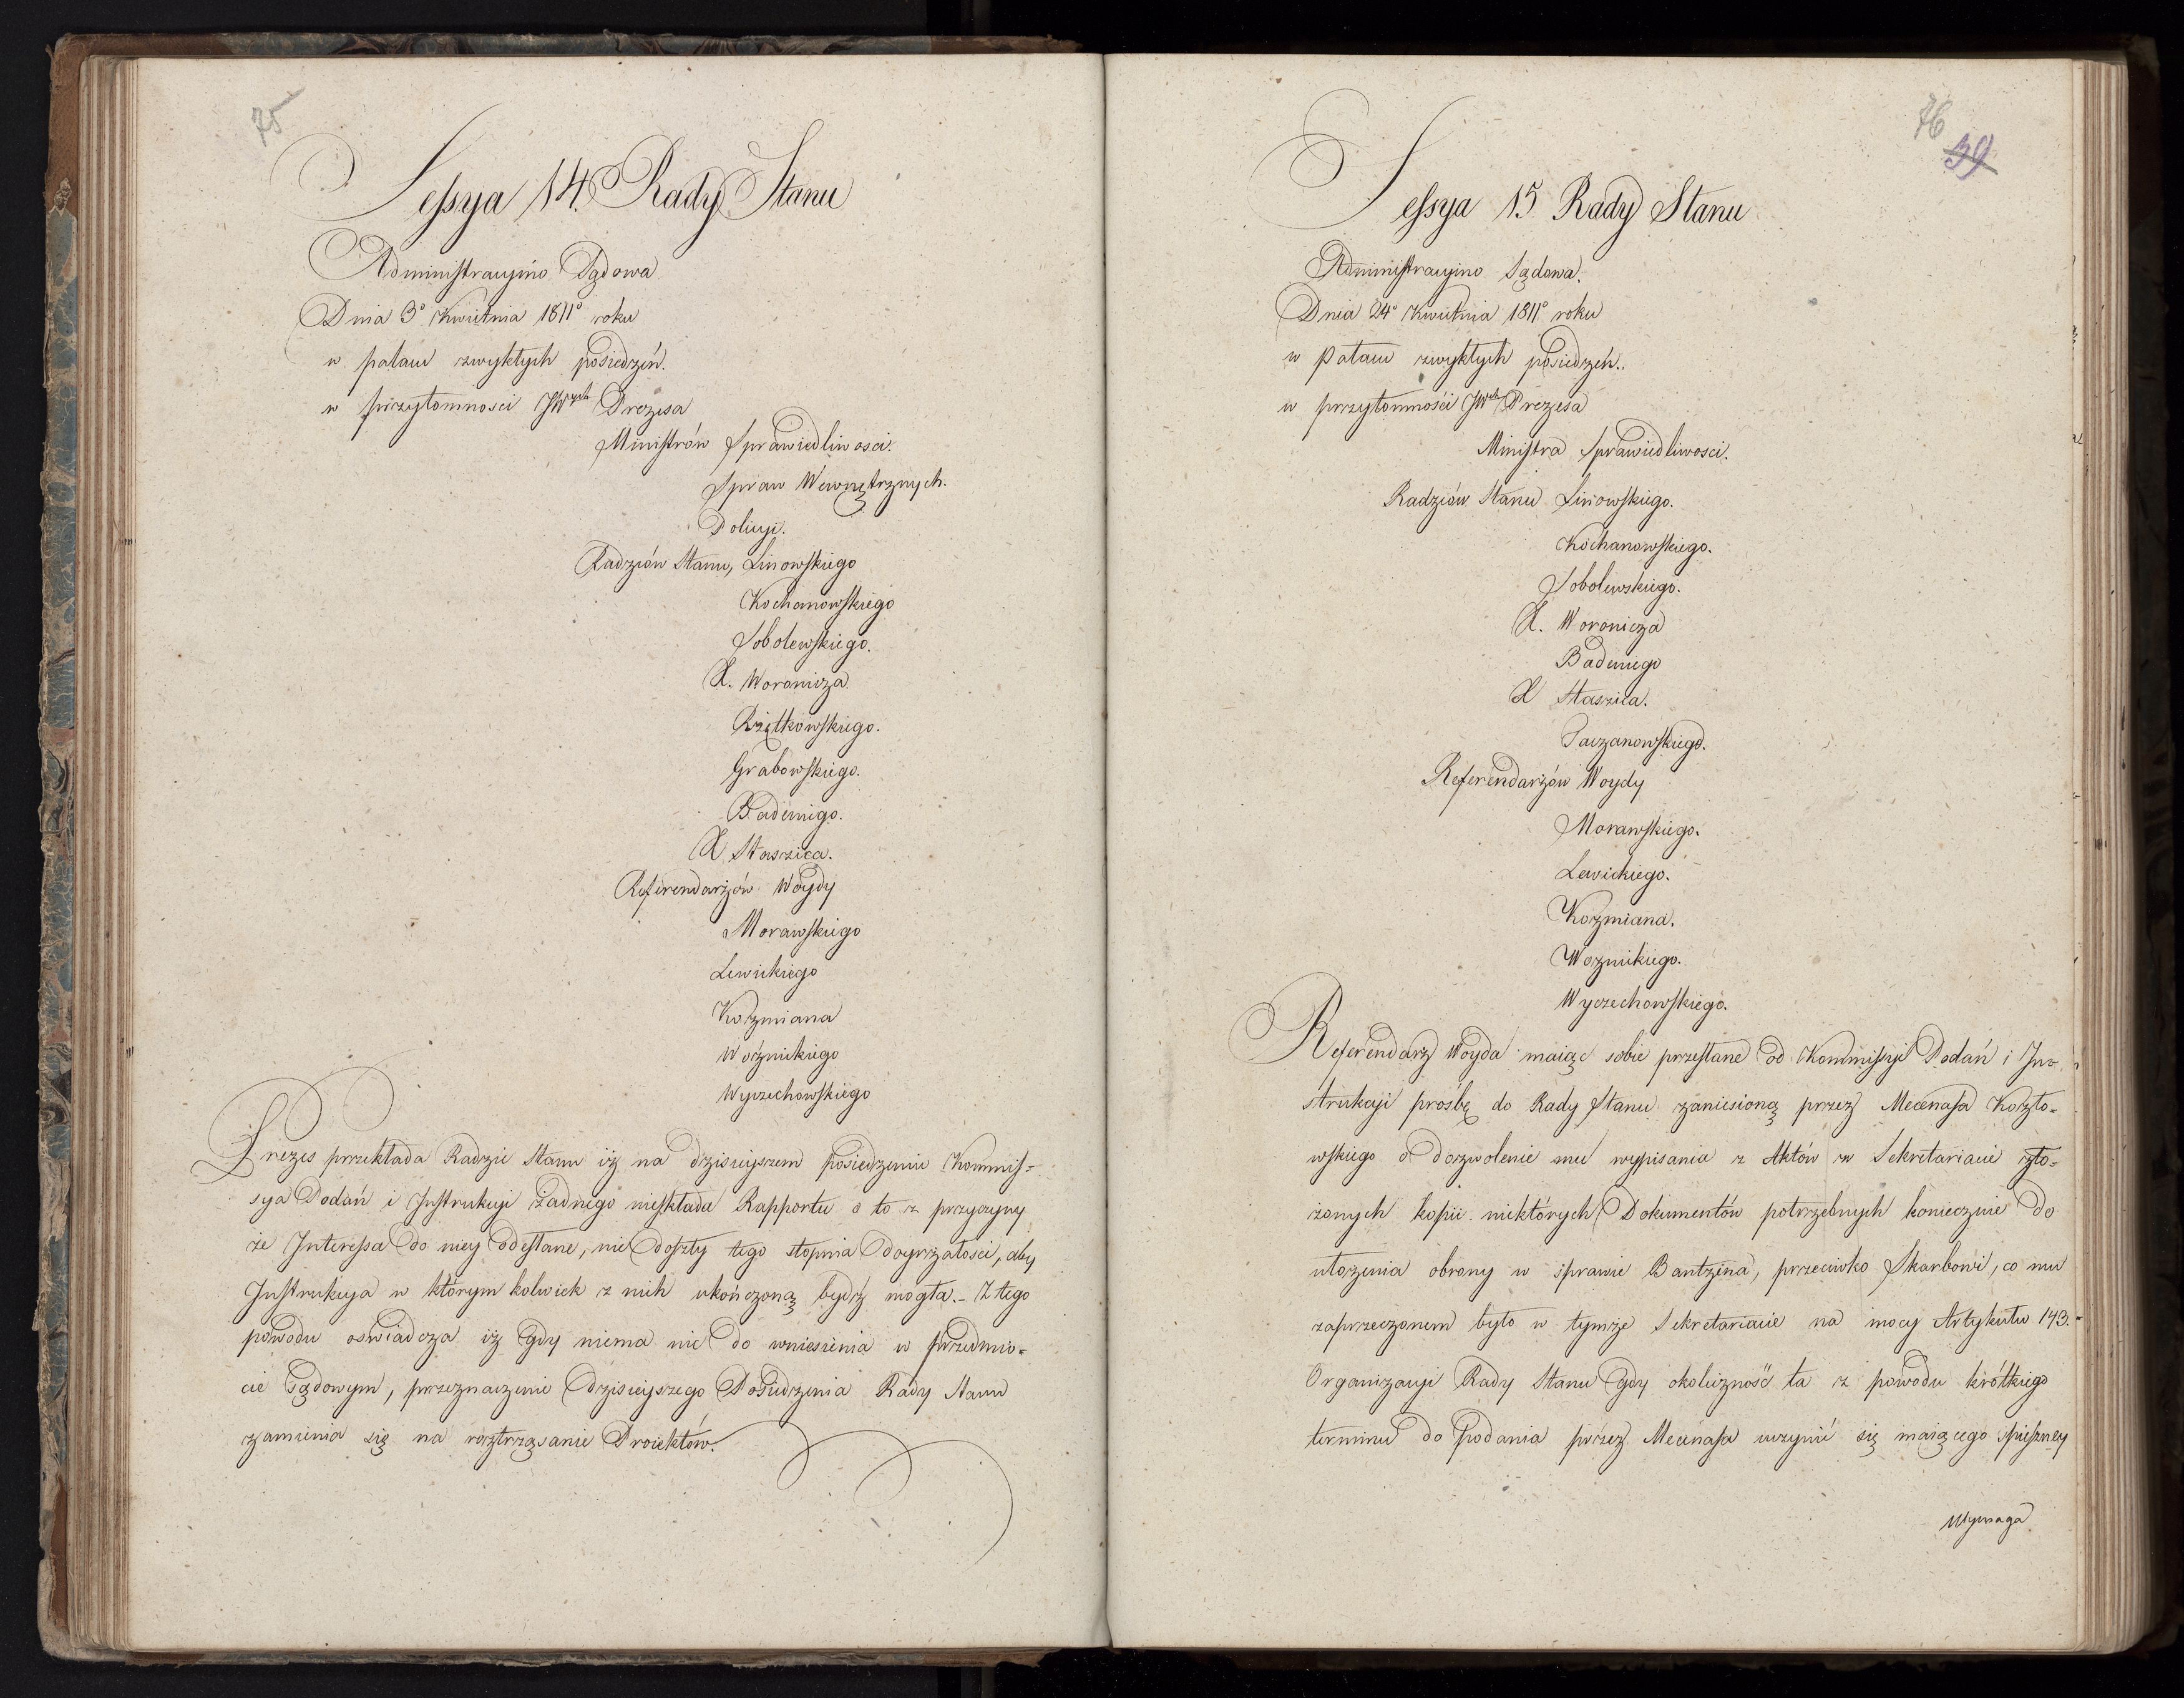 75
Sessya 14. Rady Stanu
Administracyino Sądowa
Dnia 3º Kwietnia 1811º roku
w pałacu zwykłych posiedzeń.
w przytomnosci JWnych Prezesa
Ministrów Sprawiedliwosci.
Spraw Wewnętrznych.
Policyi.
Radzców Stanu, Linowskiego
Kochanowskiego
Sobolewskiego.
X. Woronicza
Rzętkowskiego.
Grabowskiego.
Badeniego.
X Staszica.
Referendarzów Woydy
Morawskiego
Lewickiego
Kozmiana
Woźnickiego
Wyczechowskiego
Prezes przekłada Radzie Stanu iż na dzisieyszem posiedzeniu Kommis=
sya Podań i Instrukcyi żadnego nieskłada Rapportu a to z przyczyny
że Interessa do niey odesłane, nie doszły tego stopnia doyrzałości, aby
Instrukcya w którym kolwiek z nich ukończoną bydź mogła. – Z tego
powodu oswiadcza iż gdy niema nic do wniesienia w przedmio=
cie Sądowym, przeznaczenie dzisieyszego Posiedzenia Rady Stanu
zamienia się na roztrząsanie Proiektów.
76
39
Sessya 15 Rady Stanu
Administracyino Sądowa.
Dnia 24º Kwietnia 1811º roku
w Pałacu zwykłych posiedzeń.
w przytomności JWch Prezesa
Ministra Sprawiedliwosci.
Radzców Stanu Linowskiego.
Kochanowskiego.
Sobolewskiego.
X. Woronicza
Badeniego
X Staszica.
Taczanowskiego.
Referendarzów Woydy
Morawskiego.
Lewickiego.
Kozmiana.
Woznickiego.
Wyczechowskiego.
Referendarz Woyda maiąc sobie przesłane od Kommissyi Podań i Ins=
strukcyi prośbę do Rady Stanu zaniesioną przez Mecenasa Kozło=
wskiego o dozwolenie mu wypisania z Aktów w Sekretariacie zło=
żonych kopii niektórych Dokumentów potrzebnych koniecznie do
ułożenia obrony w sprawie Bantzina, przeciwko Skarbowi, co mu
zaprzeczonem było w tymże Sekretariacie na mocy Artykułu 143.
Organizacyi Rady Stanu gdy okoliczność ta z powodu krótkiego
terminu do podania przez Mecenasa uczynić się maiącego spieszney
wymaga